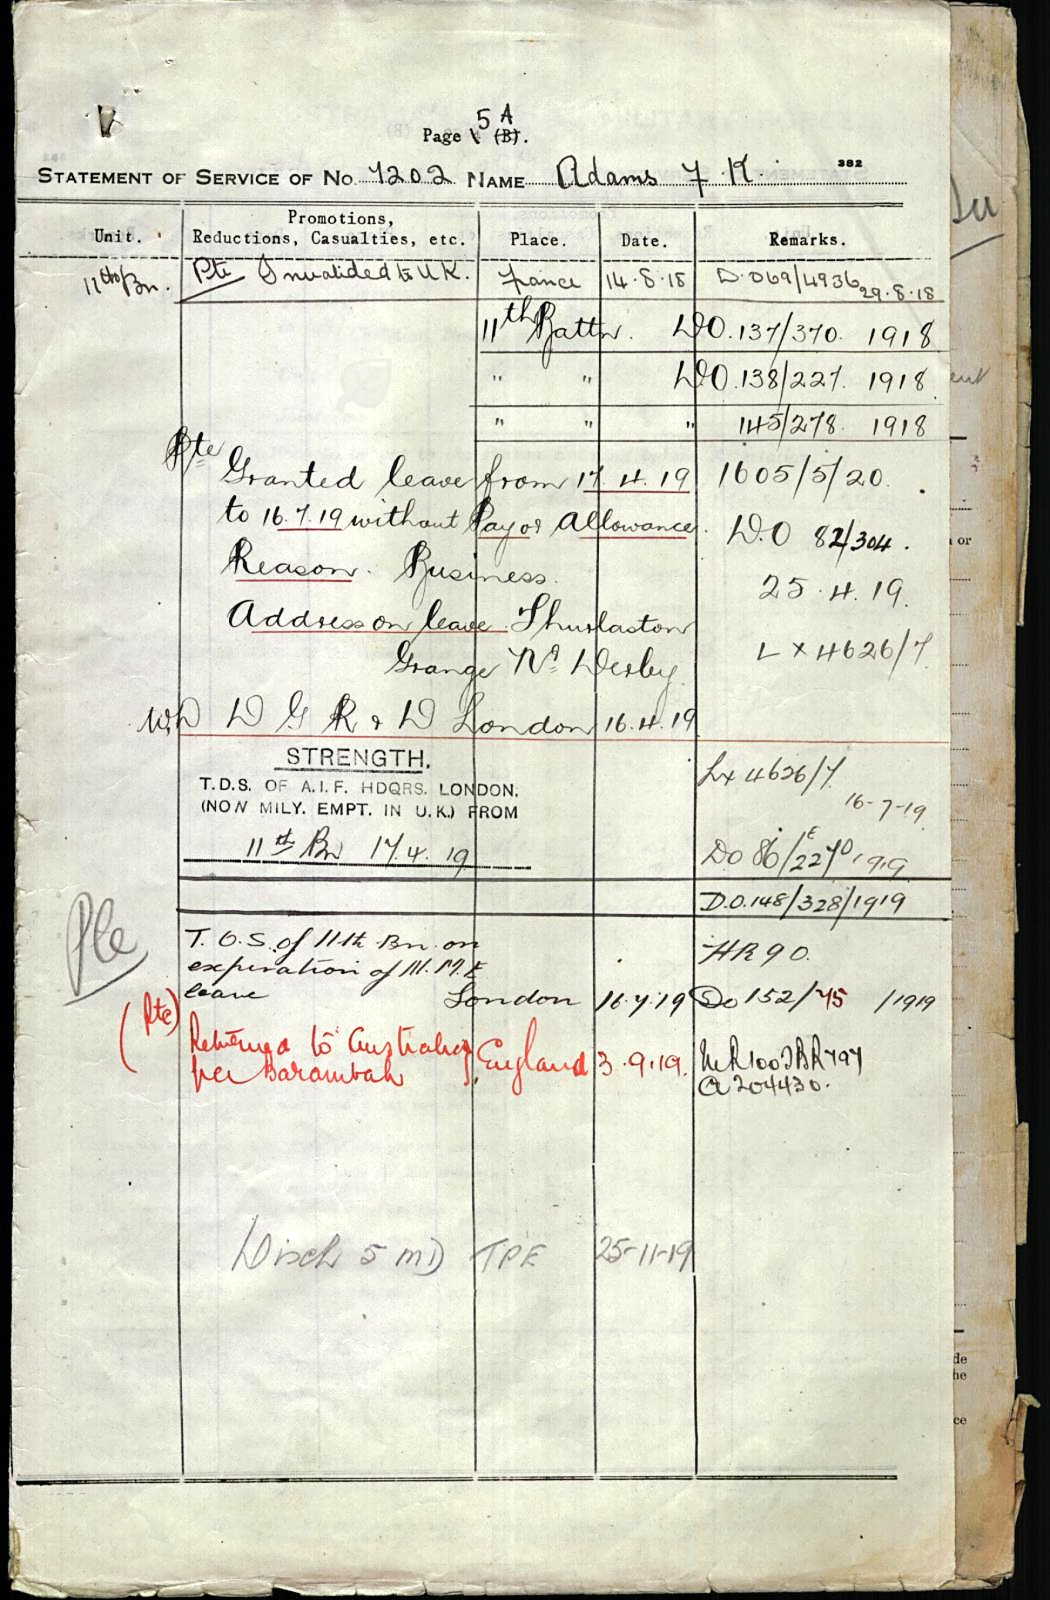 Page 5 A (B).
382
STATEMENT OF SERVICE OF No. 7202 NAME Adams F. K.
Unit. Promotions, Reductions, Casualties, etc. Place. Date. Remarks.
11th Bn. Pte Invalided to U K. France 14.8.18 D.069/4936 29.8.18
11th Battn. DO.137/370. 1918
" " DO.138/227. 1918
" " " 145/278. 1918
Pte
Granted leave from 17.4.19 1605/5/20.
to 16.7.19 without Pay or Allowance. D.O 82/304.
Reason. Business. 25.4.19.
Address on leave. Thurlaston L X 4626/7
Grange Nr Derby.
D G R & D London 16.4.19
STRENGTH. Lx 4626/7.
T.D.S. OF A.I.F. HDQRS. LONDON. 16-7-19
(NON MILY. EMPT. IN U.K.) FROM
11th Bn 17.4.19 DO 86/227 1919
D.O.148/328/1919
Pte
T.O.S. of 11th Bn. on HR90.
expiration of N.M.E
leave London 16.7.19 Do 152/75 /1919
(Pte) Returned to Australia England 3.9.19.
per Barambah A 204430.
Disch 5 MD TPE 25-11-19
ent
or
de
he
ce